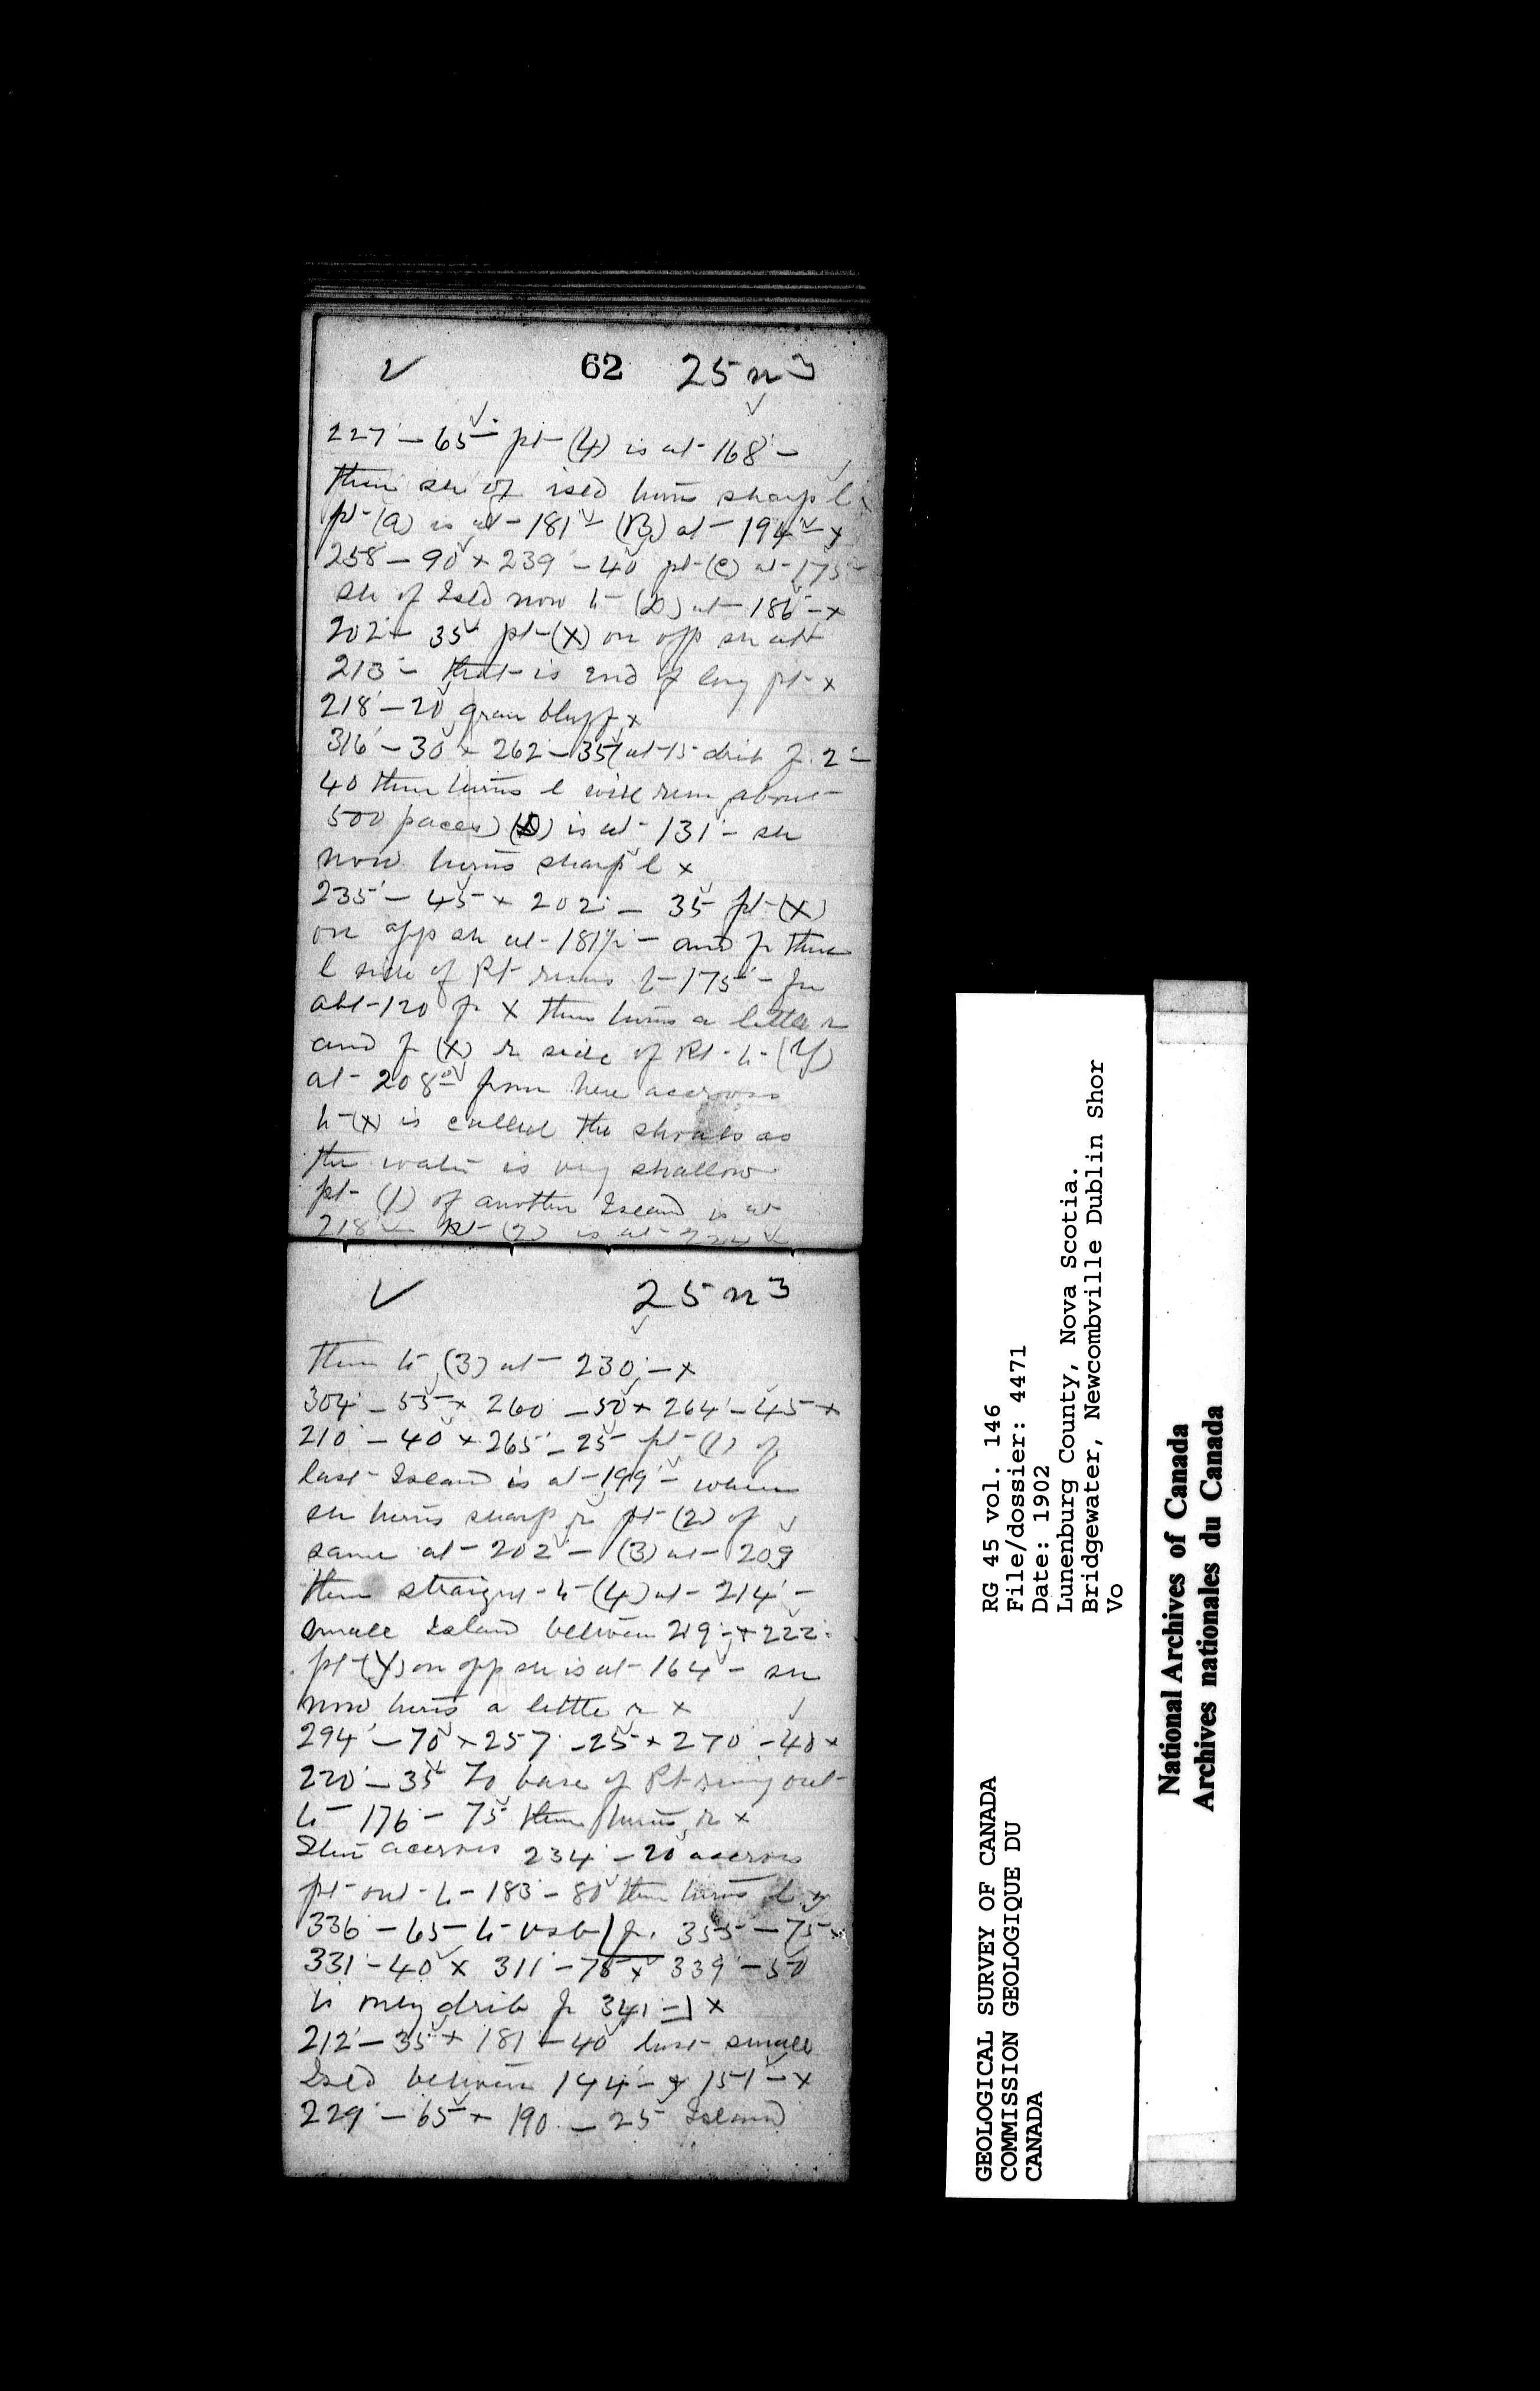 62 25 n 3
227 – 65 pt (4) is at 168 –
then sh of isld turns sharp l x
pt (a) is at – 181 – (B) at – 194 – x
258 – 90 x 239 – 40 pt (C) at – 175 –
sh of Isld now to (D) at – 186 – x
202 – 35 pt (X) on opp sh at
213 – that is end of long pt x
218 – 20 gran bluff x
316 – 30 x 262 – 35 (at 15 drib f 2 –
40 then turns l will run about
500 paces) (D) is at – 131 – sh
now turns sharp l x
235 – 45 x 202 – 35 pt (X)
on opp sh at – 181 – and then
l side of Pt runs to 175 – for
abt 120 p x then turns a little r
and f (X) r side of Pt to (Y)
at – 208 – from here accross
to (X) is called the shoals as
the water is very shallow
pt (1) of another Island is at
218 – pt (2) is at
25 n 3
then to (3) at – 230 – x
304 – 55 x 260 – 50 x 264 – 45 x
210 – 40 x 265 – 25 pt (1) of
last Island is at – 199 – where
sh turns sharp r pt (2) of
same at – 202 – (3) at – 209
then straight to (4) at – 214 –
small Island between 219 – + 222 –
pt (Y) on opp sh is at – 164 – sh
now turns a little r x
294 – 70 x 257 – 25 x 270 – 40 x
220 – 35 To base of Pt runing out
to 176 – 75 then turns r x
accross 234 – 20 accross
pt out to – 183 – 80 then turns l x
336 – 65 to f. 355 – 75 x
331 – 40 x 311 – 75 x 339 – 50
is only drib f 341 – x
212 – 35 x 181 – 40 last small
Isld between 144 – + 151 – x
229 – 65 x 190 – 25 Island
GEOLOGICAL SURVEY OF CANADA
COMMISSION GEOLOGIQUE DU
CANADA
RG 45 vol. 146
File/dossier: 4471
Date: 1902
Lunenburg County, Nova Scotia.
Bridgewater, Newcombville Dublin Shor
Vo
National Archives of Canada
Archives nationales du Canada